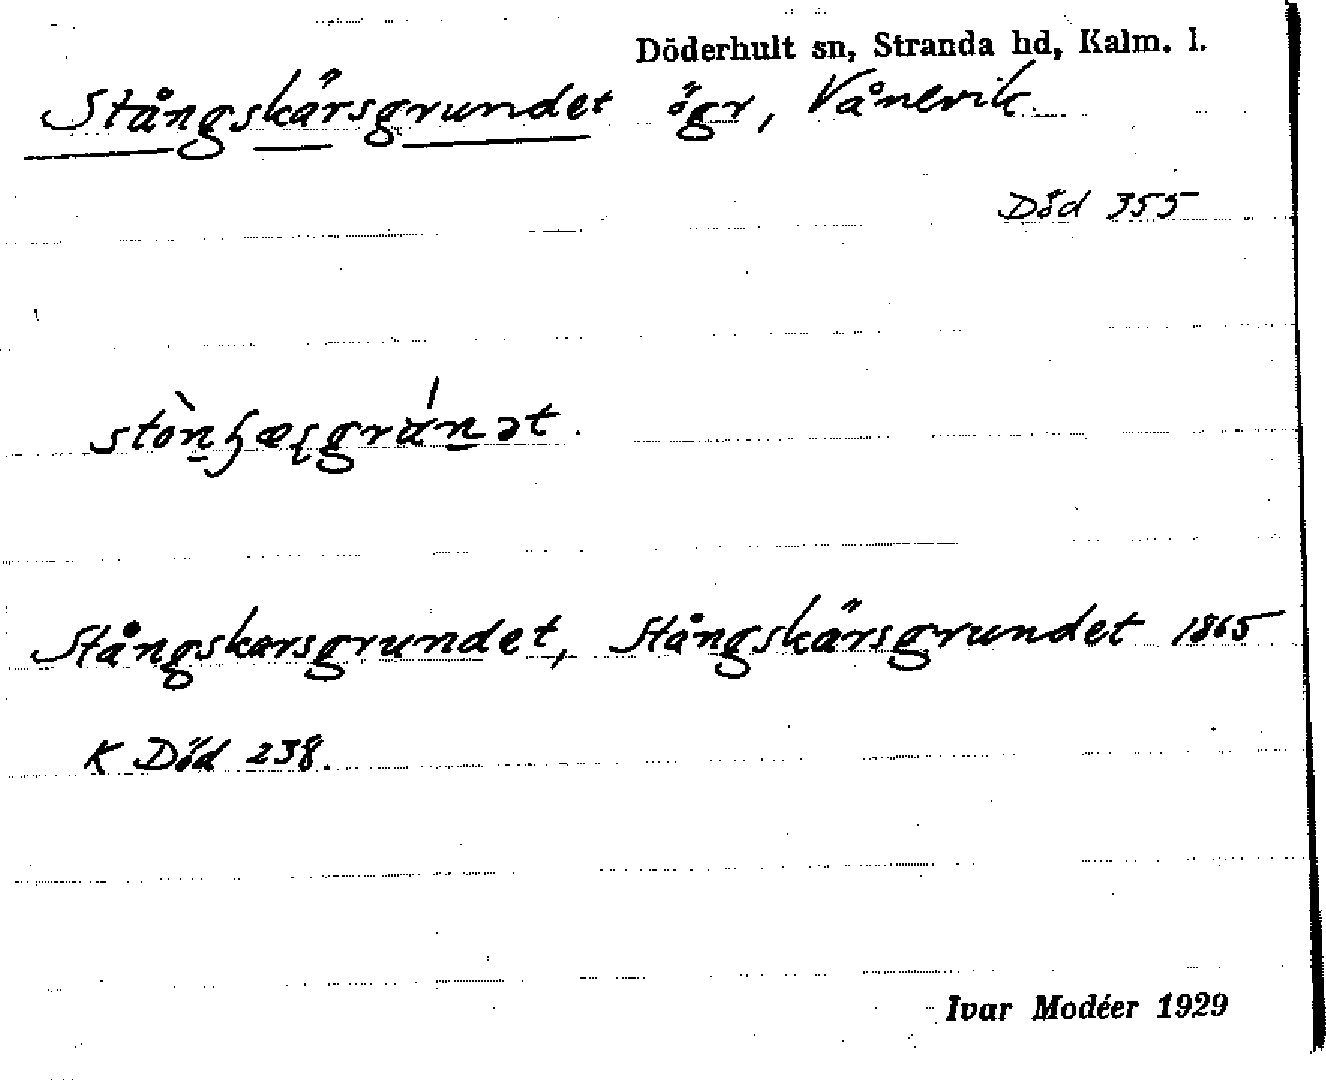 Döderhult sn, Stranda hd, Kalm. l.
Stångskärsgrundet ögr, Vånevik.
Död 355
Stångskarsgrundet, Stångskärsgrundet 1865
K Död 238.
Ivar Modéer 1929